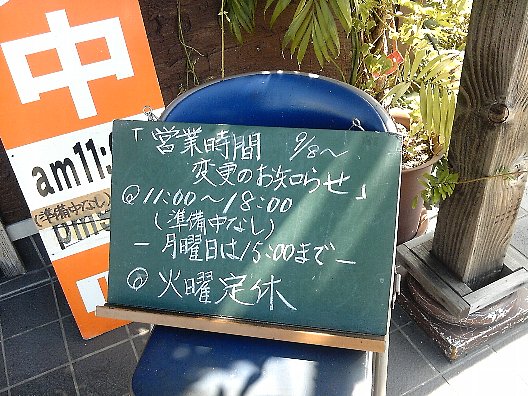 中
am11:
(準備中なし)
pm
「営業時間 9/8～
変更のお知らせ」
◎11:00～18:00
(準備中なし)
－月曜日は15:00まで－
◎火曜定休